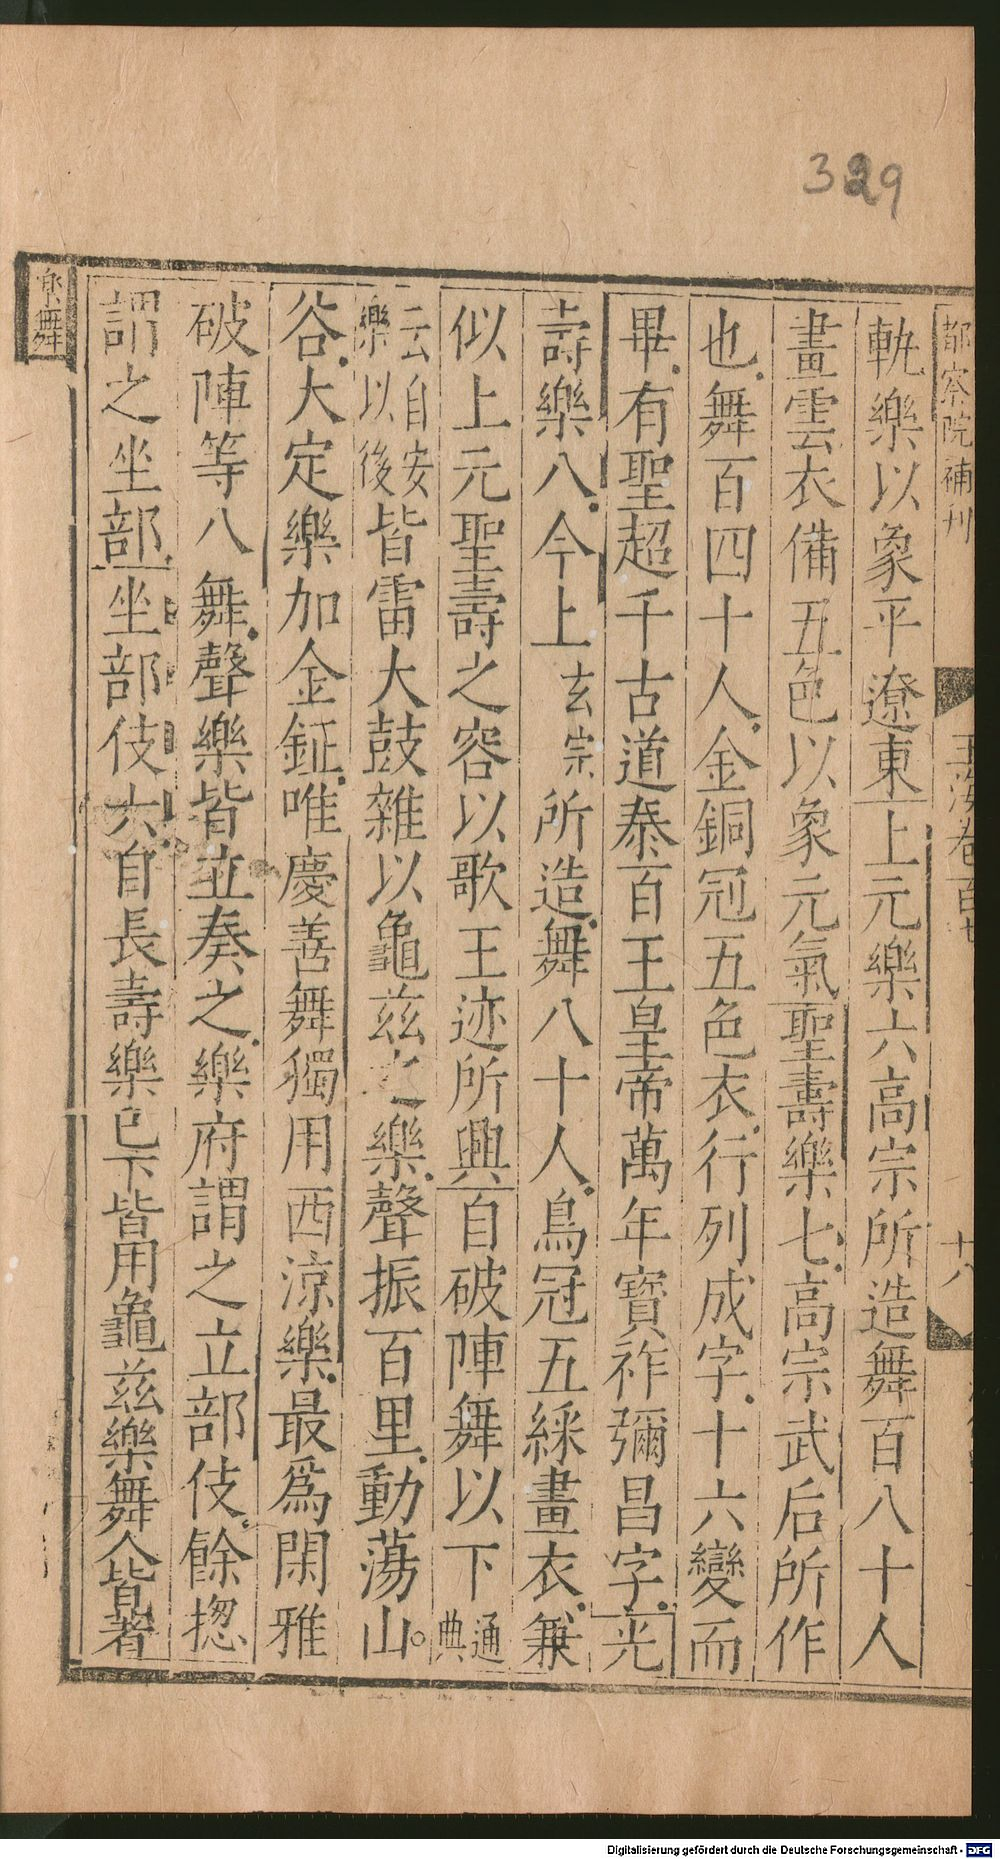 329
都察院補刋
玉海卷百七
十八
軌樂以象平遼東上元樂六高宗所造舞百八十人
畫雲衣備五色以象元氣聖壽樂七高宗武后所作
也舞百四十人金銅冠五色衣行列成字十六變而
畢有聖超千古道泰百王皇帝萬年寶祚彌昌字光
壽樂八今上玄宗所造舞八十人鳥冠五綵畫衣兼
似上元聖壽之容以歌王迹所興自破陣舞以下通典
云自安樂以後皆雷大鼓雜以龜茲之樂聲振百里動蕩山
谷大定樂加金鉦唯慶善舞獨用西涼樂最爲閑雅
破陣等八舞聲樂皆立奏之樂府謂之立部伎餘揔
謂之坐部坐部伎六自長壽樂已下皆用龜茲樂舞人皆著
樂舞
Digitalisierung gefördert durch die Deutsche Forschungsgemeinschaft - DFG